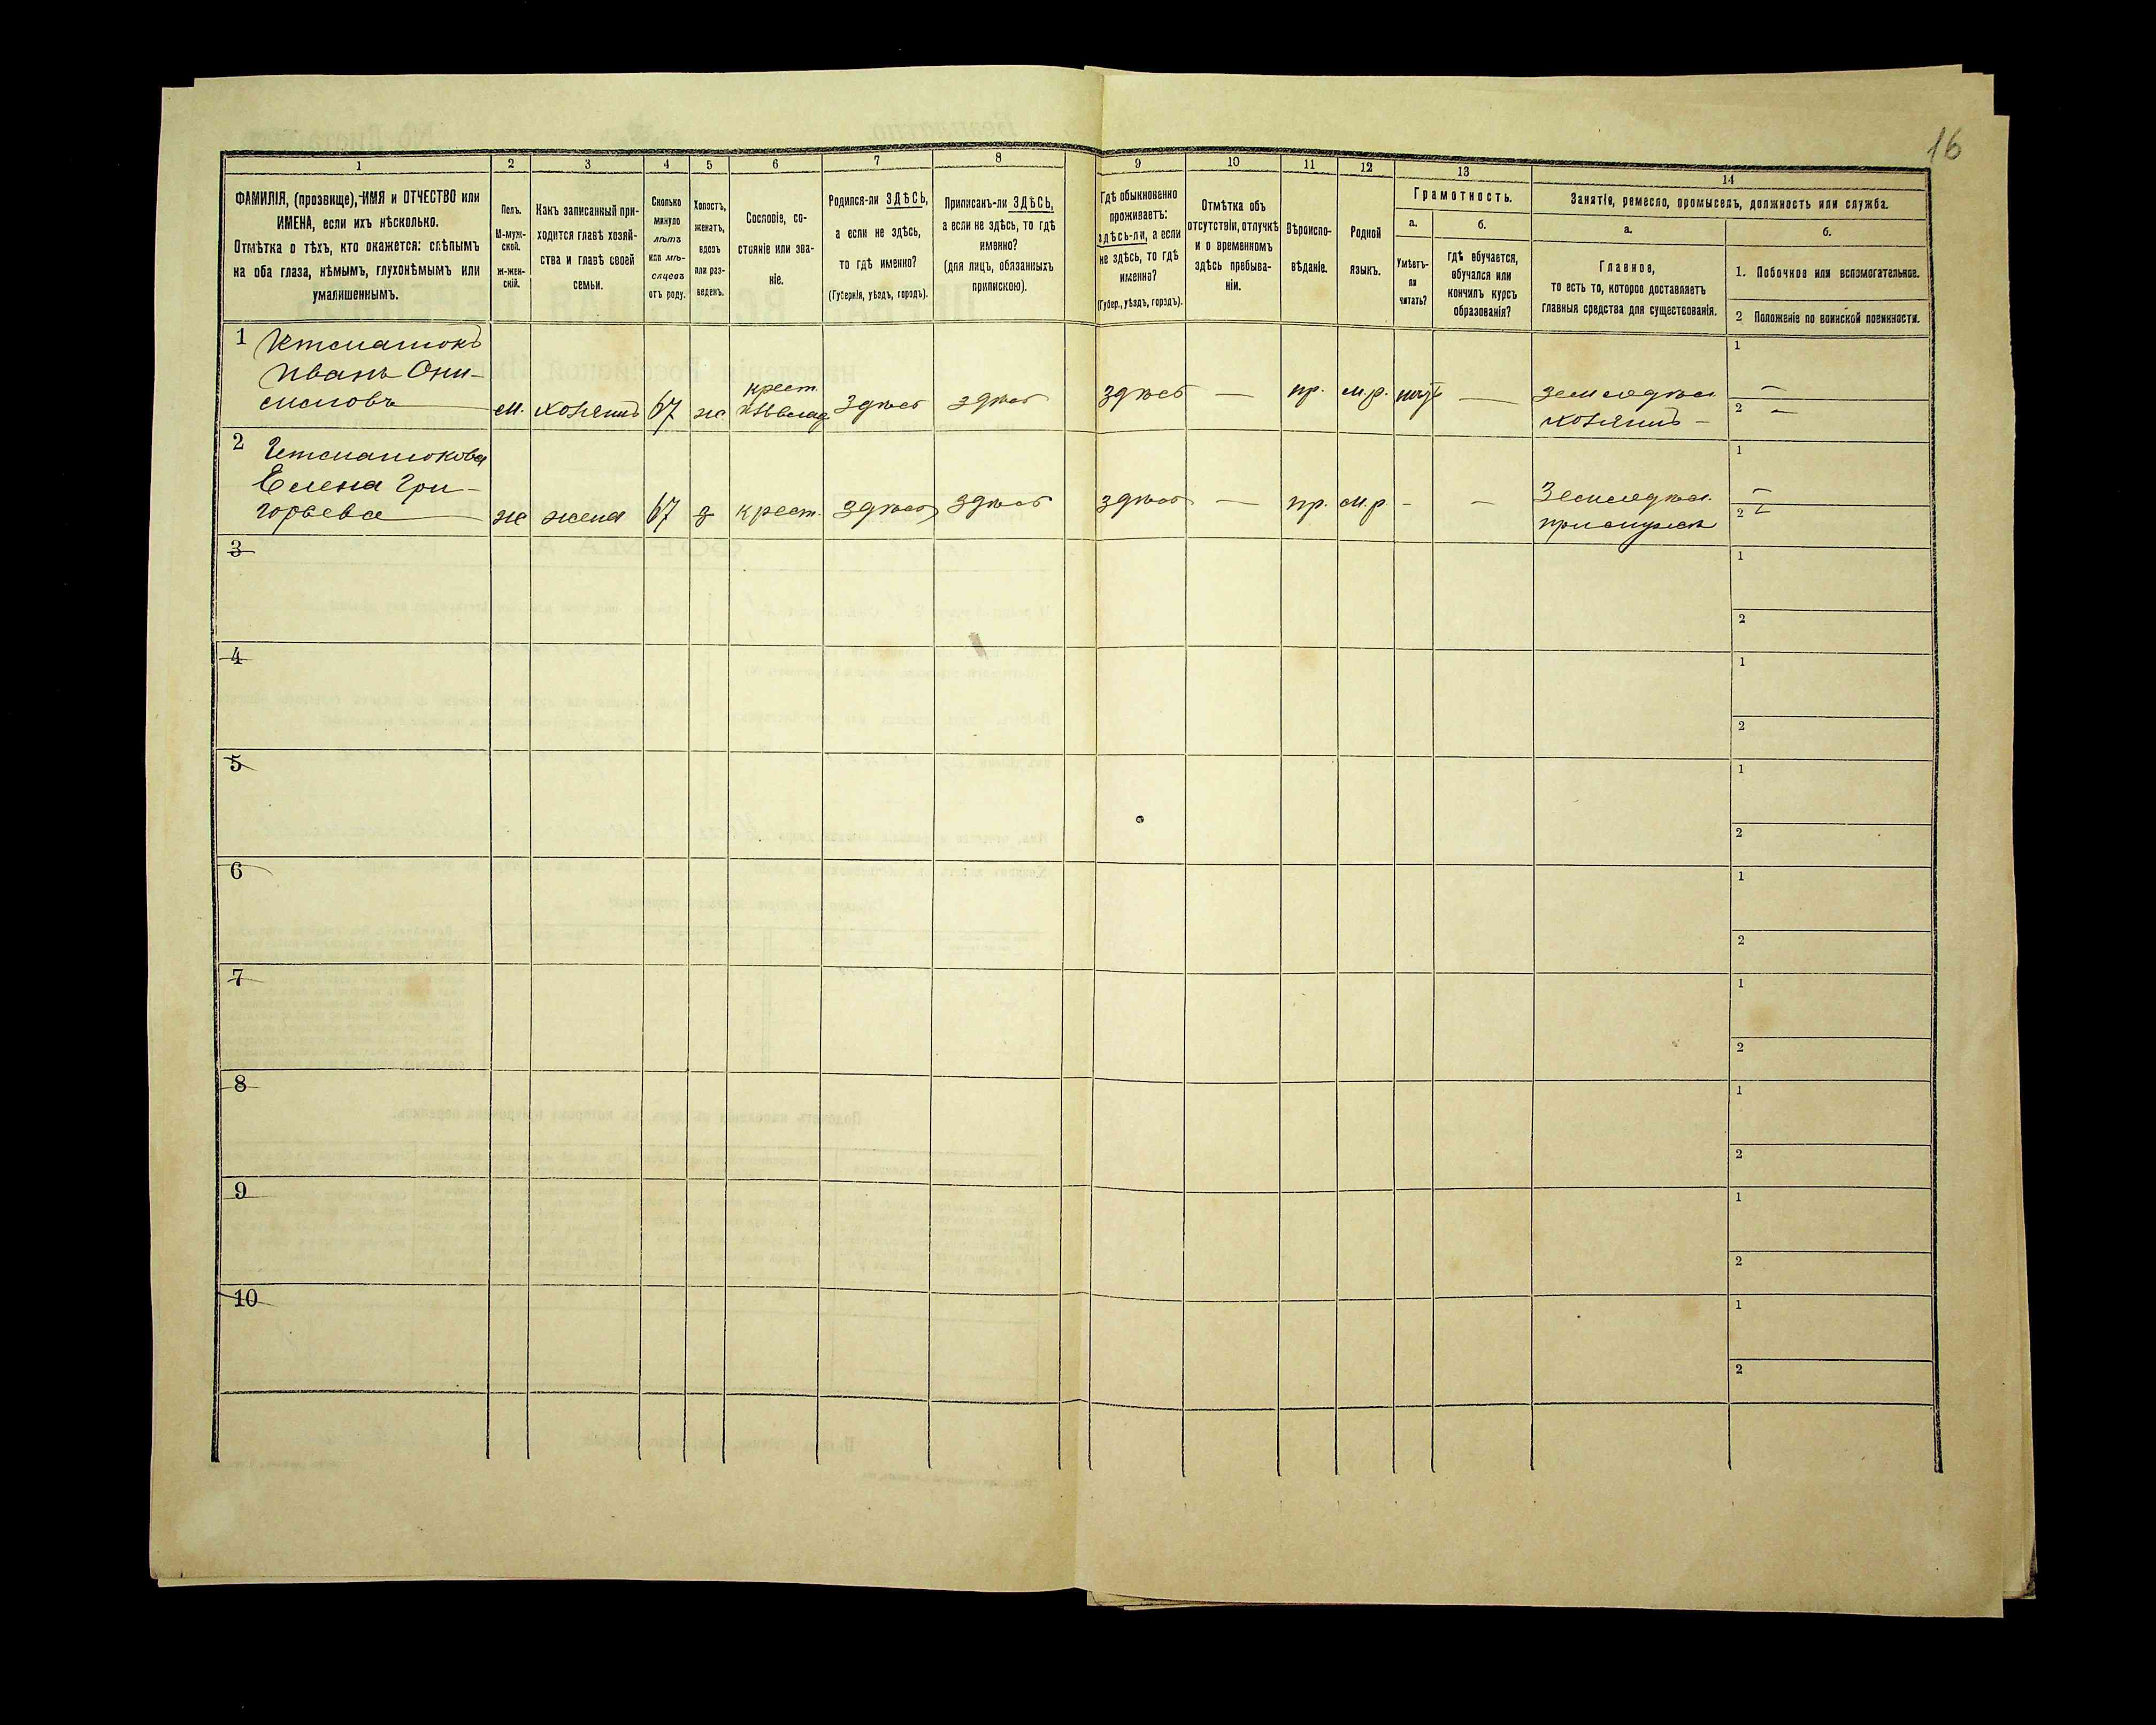 16
1
ФАМИЛІЯ, (прозвище), ИМЯ и ОТЧЕСТВО или
ИМЕНА, если ихъ нѣсколько.
Отмѣтка о тѣхъ, кто окажется: слѣпымъ
на оба глаза, нѣмымъ, глухонѣмымъ или
умалишеннымъ.
2
Полъ.
М-муж-
ской.
ж-жен-
скій.
3
Какъ записанный при-
ходится главѣ хозяй-
ства и главѣ своей
семьи.
4
Сколько
минуло
лѣтъ
или мѣ-
сяцевъ
отъ роду.
5
Холостъ,
женатъ,
вдовъ
или раз-
веденъ.
6
Сословіе, со-
стояніе или зва-
ніе.
7
Родился-ли ЗДѢСЬ,
а если не здѣсь,
то гдѣ именно?
(Губернія, уѣздъ, городъ).
8
Приписанъ-ли ЗДѢСЬ,
а если не здѣсь, то гдѣ
именно?
(для лицъ, обязанныхъ
припискою).
9
Гдѣ обыкновенно
проживаетъ:
здѣсь-ли, а если
не здѣсь, то гдѣ
именно?
(Губер., уѣздъ, городъ).
10
Отмѣтка объ
отсутствіи, отлучкѣ
и о временномъ
здѣсь пребыва-
ніи.
11
Вѣроиспо-
вѣданіе.
12
Родной
языкъ.
13
Грамотность.
а.
Умѣетъ-
ли
читать?
б.
гдѣ обучается,
обучался или
кончилъ курсъ
образованія?
14
Занятіе, ремесло, промыселъ, должность или служба.
а.
Главное,
то есть то, которое доставляетъ
главныя средства для существованія.
б.
1. Побочное или вспомогательное.
2 Положеніе по воинской повинности.
1
Иванъ Они-
симовъ
м. хозяинъ 67 ж. крест.
здѣсь здѣсь здѣсь — пр. м.р. — земледѣл.
хозяинъ —
1 —
2 —
2
Елена Гри-
горьева
ж жена 67 з крест. здѣсь здѣсь здѣсь — пр. м.р. - — Земледѣл.
1 —
2 —
3
1
2
4
1
2
5
1
2
6
1
2
7
1
2
8
1
2
9
1
2
10
1
2